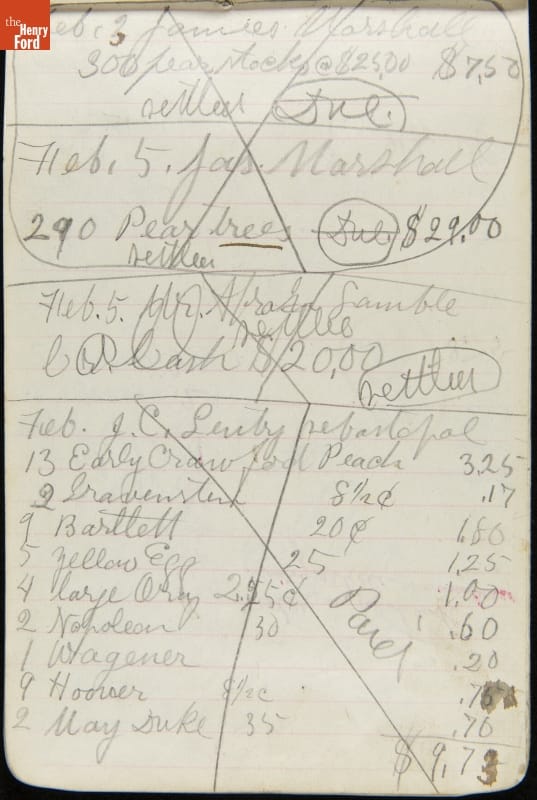 the
Henry
Ford
Feb. 3 James Marshall
300 pear stocks @ $25,00 $7,50
settled Due.
Feb. 5. Jas. Marshall
290 Pear trees Due. $29.00
settled
Feb. 5. Mr. Gamble
settled
Cash $20,00
settled
Feb. J. C. Sebastopol
13 Early Crawford Peach 3.25
2 Gravenstein 8½¢ .17
9 Bartlett 20¢ 1.80
5 Yellow Egg 25 1,25
4 large 25¢ 1.00
2 Napoleon 30 .60
Paid
1 Wagener .20
9 Hoover 8½c
2 May Duke 35 .70
$9,73